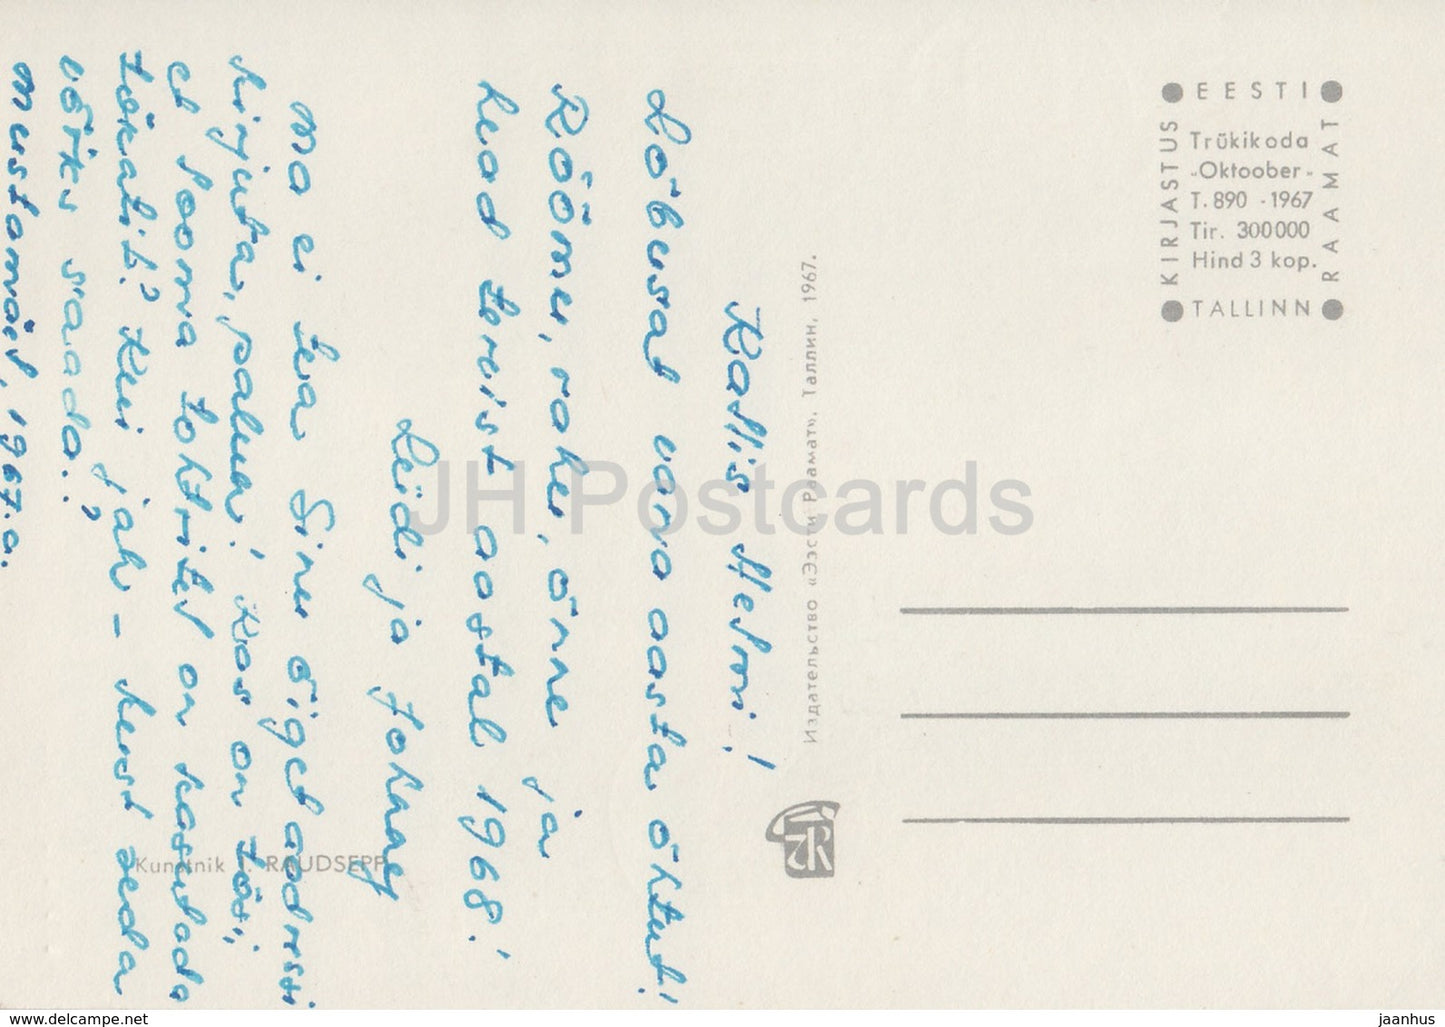 Kallis Helmi!
Lõbusat vana aasta õhtut!
Rõõmu, rahu, õnne ja
head tervist aastal 1968!
Leidi ja
Ma ei tea Sinu õiget aadressi
kirjuta, palun! Kas on tõsi,
et looma tohtritel on kasulada
tõkatit? Kui jah - kust seda
võiks saada??
Mustamäel, 1967.a.
EESTI
RAAMAT
KIRJASTUS
TALLINN
Trükikoda
„Oktoober"
T. 890 - 1967
Tir. 300 000
Hind 3 kop.
Издательство «Ээсти Раамат», Таллин, 1967.
Kunstnik RAUDSEPP
JH Postcards
www.delcampe.net
jaanhus